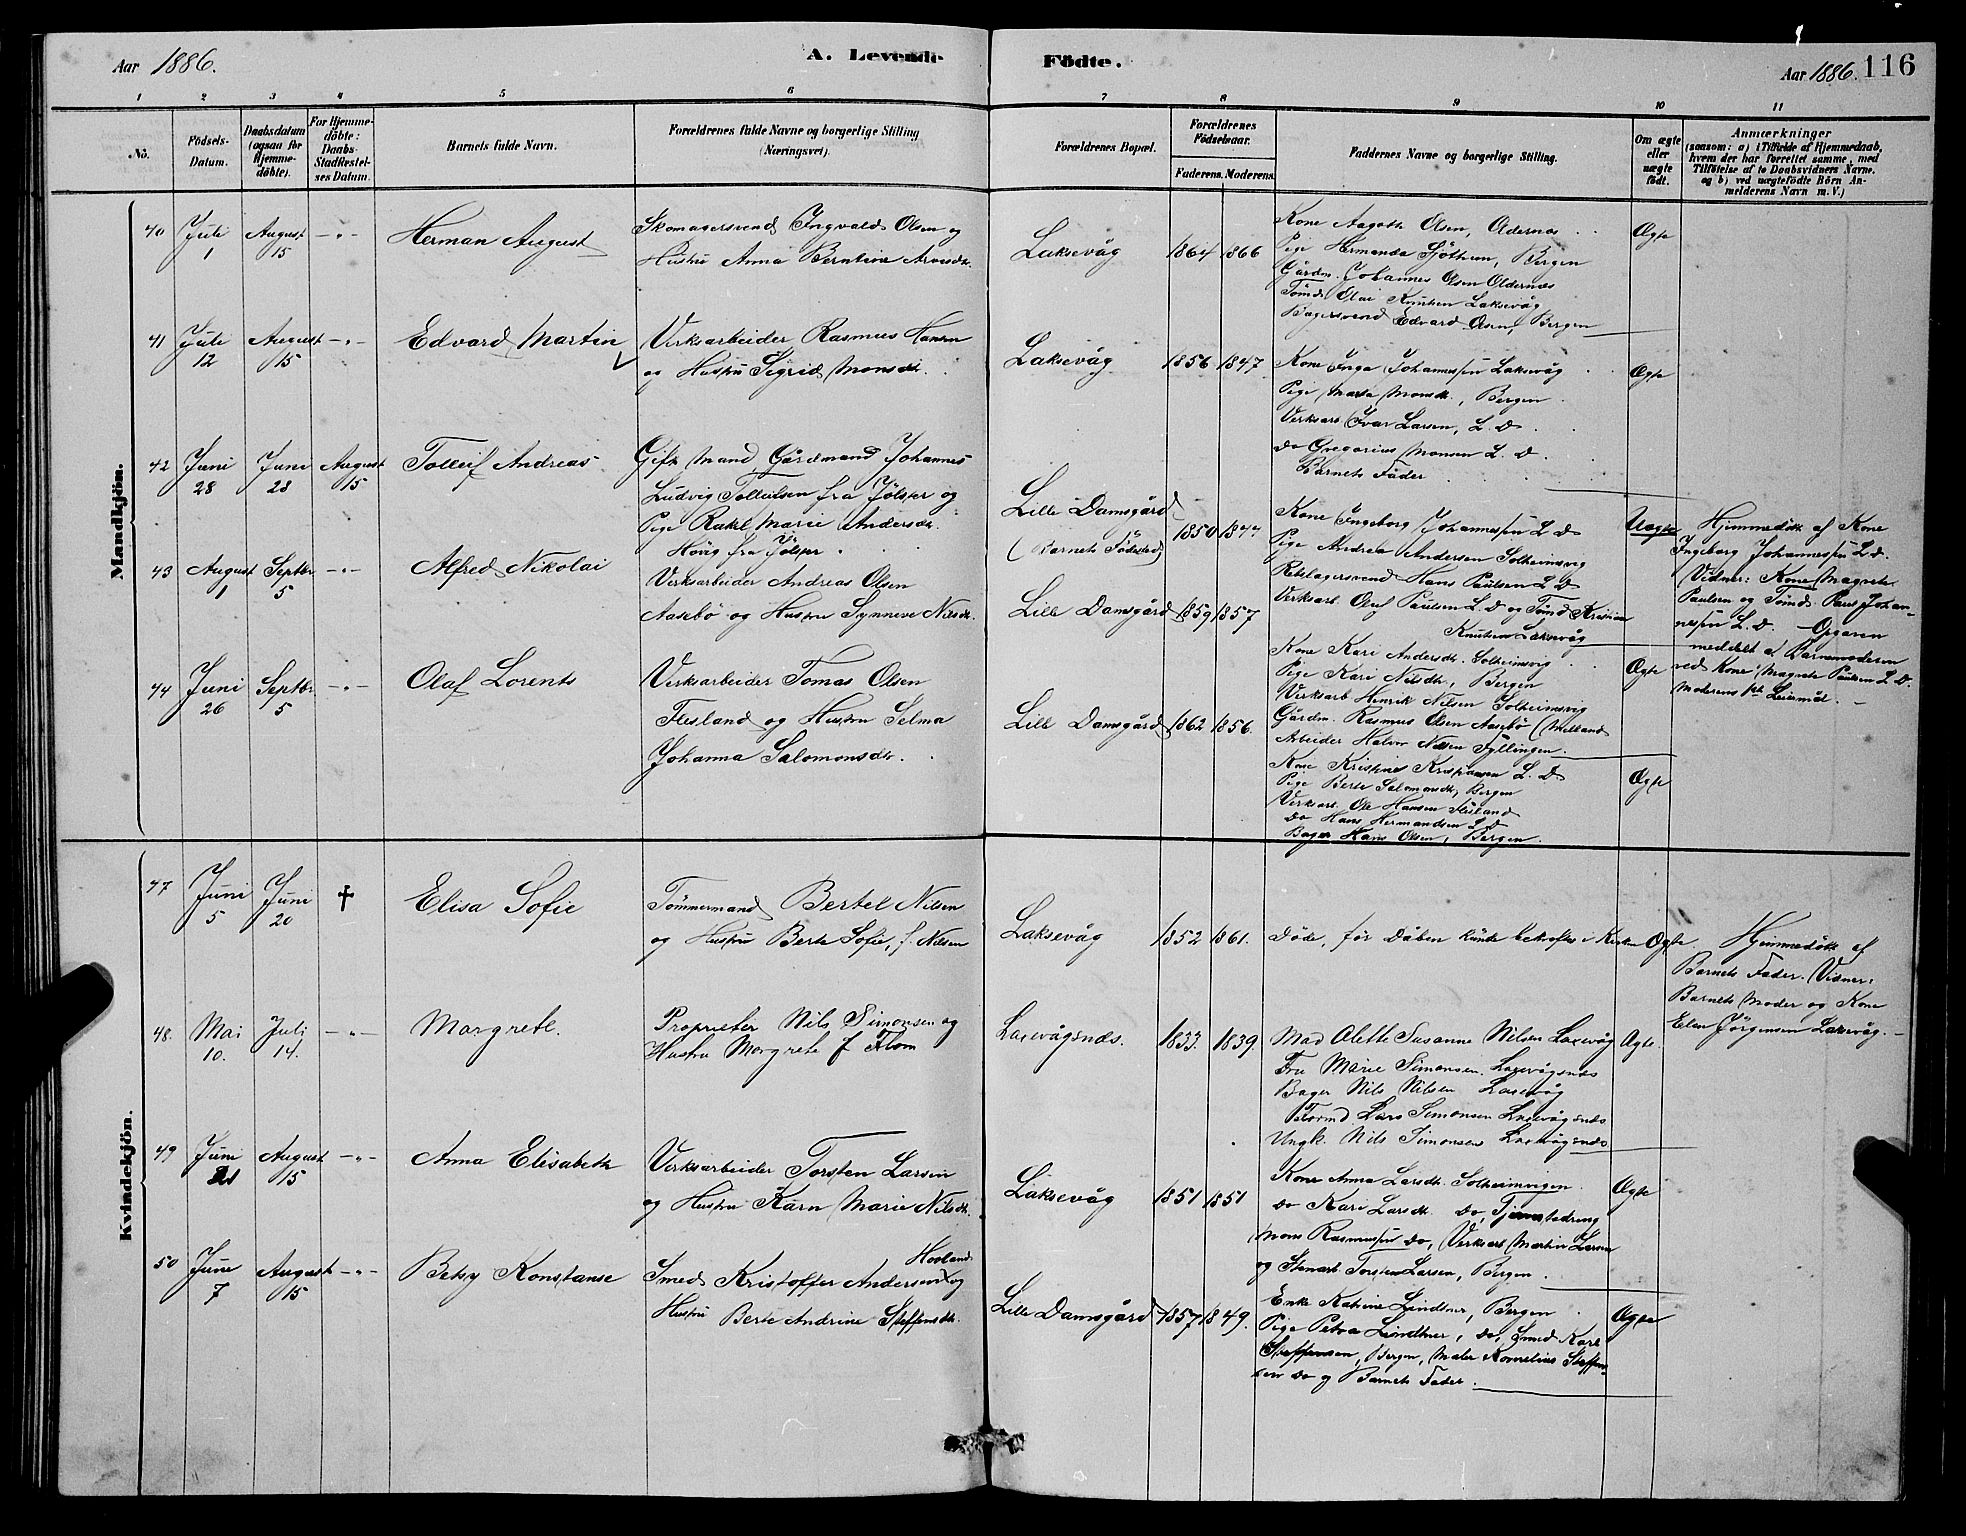 Aar 1886.
A. Levende
Födte.
Aar 1886. 116
1 2 3 4 5 6 7 8 9 10 11
No.
Födsels-
Datum.
Daabsdatum
(ogsaa for
Hjemme-
döbte).
For Hjemme-
döbte:
Daabs-
Stadfæstel-
ses Datum.
Barnets fulde Navn.
Forældrenes fulde Navne og borgerlige Stilling
(Næringsvei).
Forældrenes Bopæl.
Forældrenes
Födselsaar.
Faderens. Moderens.
Faddernes Navne og borgerlige Stilling.
Om ægte
eller
uægte
födt.
Anmærkninger
(saasom: a) i Tilfælde af Hjemmedaab,
hvem der har forrettet samme, med
Tilföielse af to Daabsvidners Navne,
og b) ved uægtefödte Börn An-
melderens Navn m. V.)
Mandkjön.
40 Juli 1 August 15 -"- Herman August
Skomagersvend Ingvald Olsen og
Hustru Anna Berntine Arnesdtr.
Laksevåg 1864 1866
Kone Aagoth Olsen, Oldernes
Pige Hermanda Sjöthun, Bergen
Gårdm. Johannes Olsen Oldernæs
Tömd. Olai Knutsen Laksevåg
Bagersvend Edvard Olsen, Bergen
Ægte
41 Juli 12 August 15 -"- Edvard Martin
Verksarbeider Rasmus Hansen
og Hustru Sigrid Monsdtr.
Laksevåg 1856 1847
Kone Inga Johannessen Laksevåg
Pige Marta Monsdtr., Bergen
Verksarb. Ivar Larsen, L. D.
do Gregorius Monsen L. D.
Barnets Fader
Ægte
42 Juni 28 Juni 28 August 15 Tolleif Andreas
Gift Mand, Gårdmand Johannes
Ludvig Tolleifsen fra Jölster og
Pige Rakel Marie Andersdtr.
Hövig fra Jölster
Lille Damsgård
(Barnets Födested) 1850
Kone Ingeborg Johannessen L. D
Pige Andrea Andersen Solheimsvig
Rebslagersvend Hans Paulsen L. D
Verksarb. Oluf Paulsen L. D og Tömd Kristian
Knutsen Laksevåg
Uægte
Hjemmedöbt af Kone
Ingeborg Johannessen L. D.
Vidner: Kone Magrete
Paulsen og Tömd. Paul Johan-
nessen L. D. - Opgaven
meddelt af Barnemoderen
ved Kone Magrete Paulsen L. D.
Moderens 1ste Leiermål. -
43 August 1 Septbr 5 -"- Alfred Nikolai
Verksarbeider Andreas Olsen
Aasebö og Hustru Synneve Nilsdtr.
Lille Damsgård 1859 1857
Kone Kari Andersdtr. Solheimsvig
Pige Kari Nilsdtr., Bergen
Verksarb Henrik Nilsen Solheimsvig
Gårdm. Rasmus Olsen Aasebö
Arbeider Halvor Nilsen Fyllingen.
Ægte
44 Juni 26 Septbr 5 -"- Olaf Lorents
Verksarbeider Tomas Olsen
Flesland og Hustru Selma
Johanna Salomonsdtr.
Lille Damsgård 1862 1856.
Kone Kristine Kristiansen L. D.
Pige Berte Salomonsdtr, Bergen
Verksarb. Ole Hansen Flesland
do Hans Hermandsen L. D
Bager Hans Olsen, Bergen.
Ægte
Kvindekjön.
47 Juni 5 Juni 20 † Elisa Sofie
Tömmermand Bertel Nilsen
og Hustru Berte Sofie, f. Nilsen
Laksevåg 1852 1861.
Döde, för Dåben kunde bekræftes i Kirken
Ægte.
Hjemmedöbt af
Barnets Fader. Vidner:
Barnets Moder og Kone
Elen Jörgensen Laksevåg. -
48. Mai 10. Juli 14. -"- Margrete.
Proprietær Nils Simonsen og
Hustru Margrete f
Laxevågsnæs. 1833. 1839.
Mad Olette Susanne Nilsen Laxevåg
Fru Marie Simonsen. Laxevågsnæs
Bager Nils Nilsen Laxevåg
Lars Simonsen Laxevågsnæs
Ungk. Nils Simonsen Laxevågsnæs
Ægte.
49 Juni August 15 -"- Anna Elisabeth
Verksarbeider Torsten Larsen
og Hustru Karn Marie Nilsdtr.
Laksevåg 1851 1851
Kone Anna Larsdtr. Solheimvigen.
do Kari Larsdtr. do,
Mons Rasmussen do, Verksarb Martin Larsen
og Torsten Larsen, Bergen
Ægte
50 June 7 August 15 -"- Betsy Konstanse
Smed Kristoffer Andersen Hovland og
Hustru Berte Andrine Steffensdtr.
Lille Damsgård 1857 1849.
Enke Katrine Lindtner, Bergen
Pige Petra Lindtner, do, Smed Karl
Steffensen, Bergen, Maler Kornelius Steffen-
sen do og Barnets Fader.
Ægte